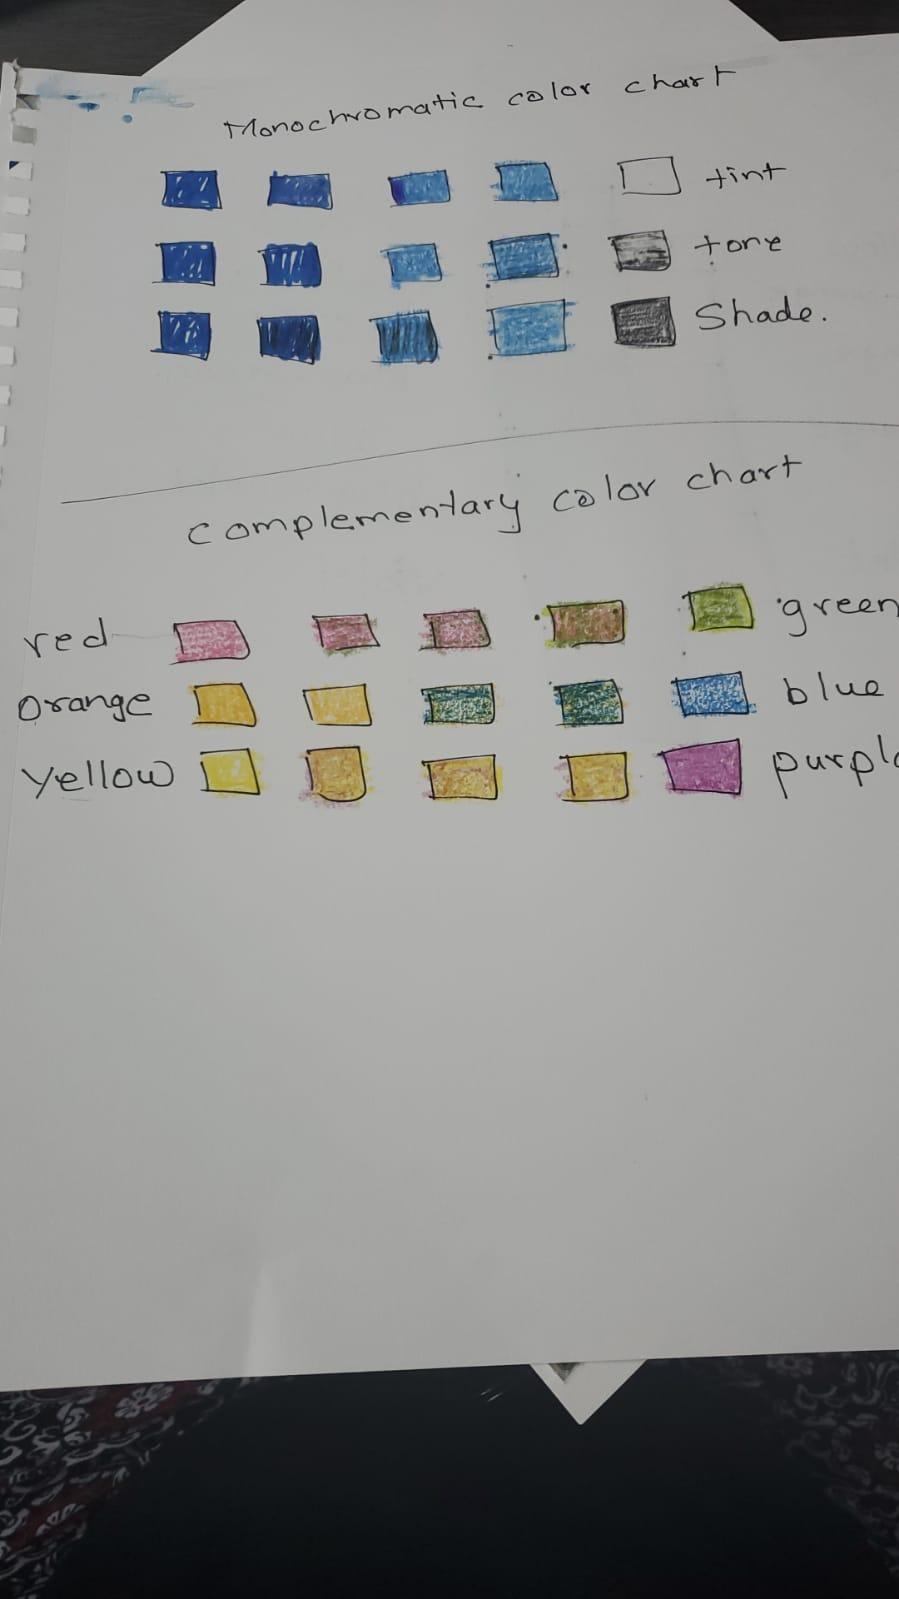 Monochromatic color chart
tint
tone
Shade.
Complementary color chart
red green
Orange blue
Yellow purple